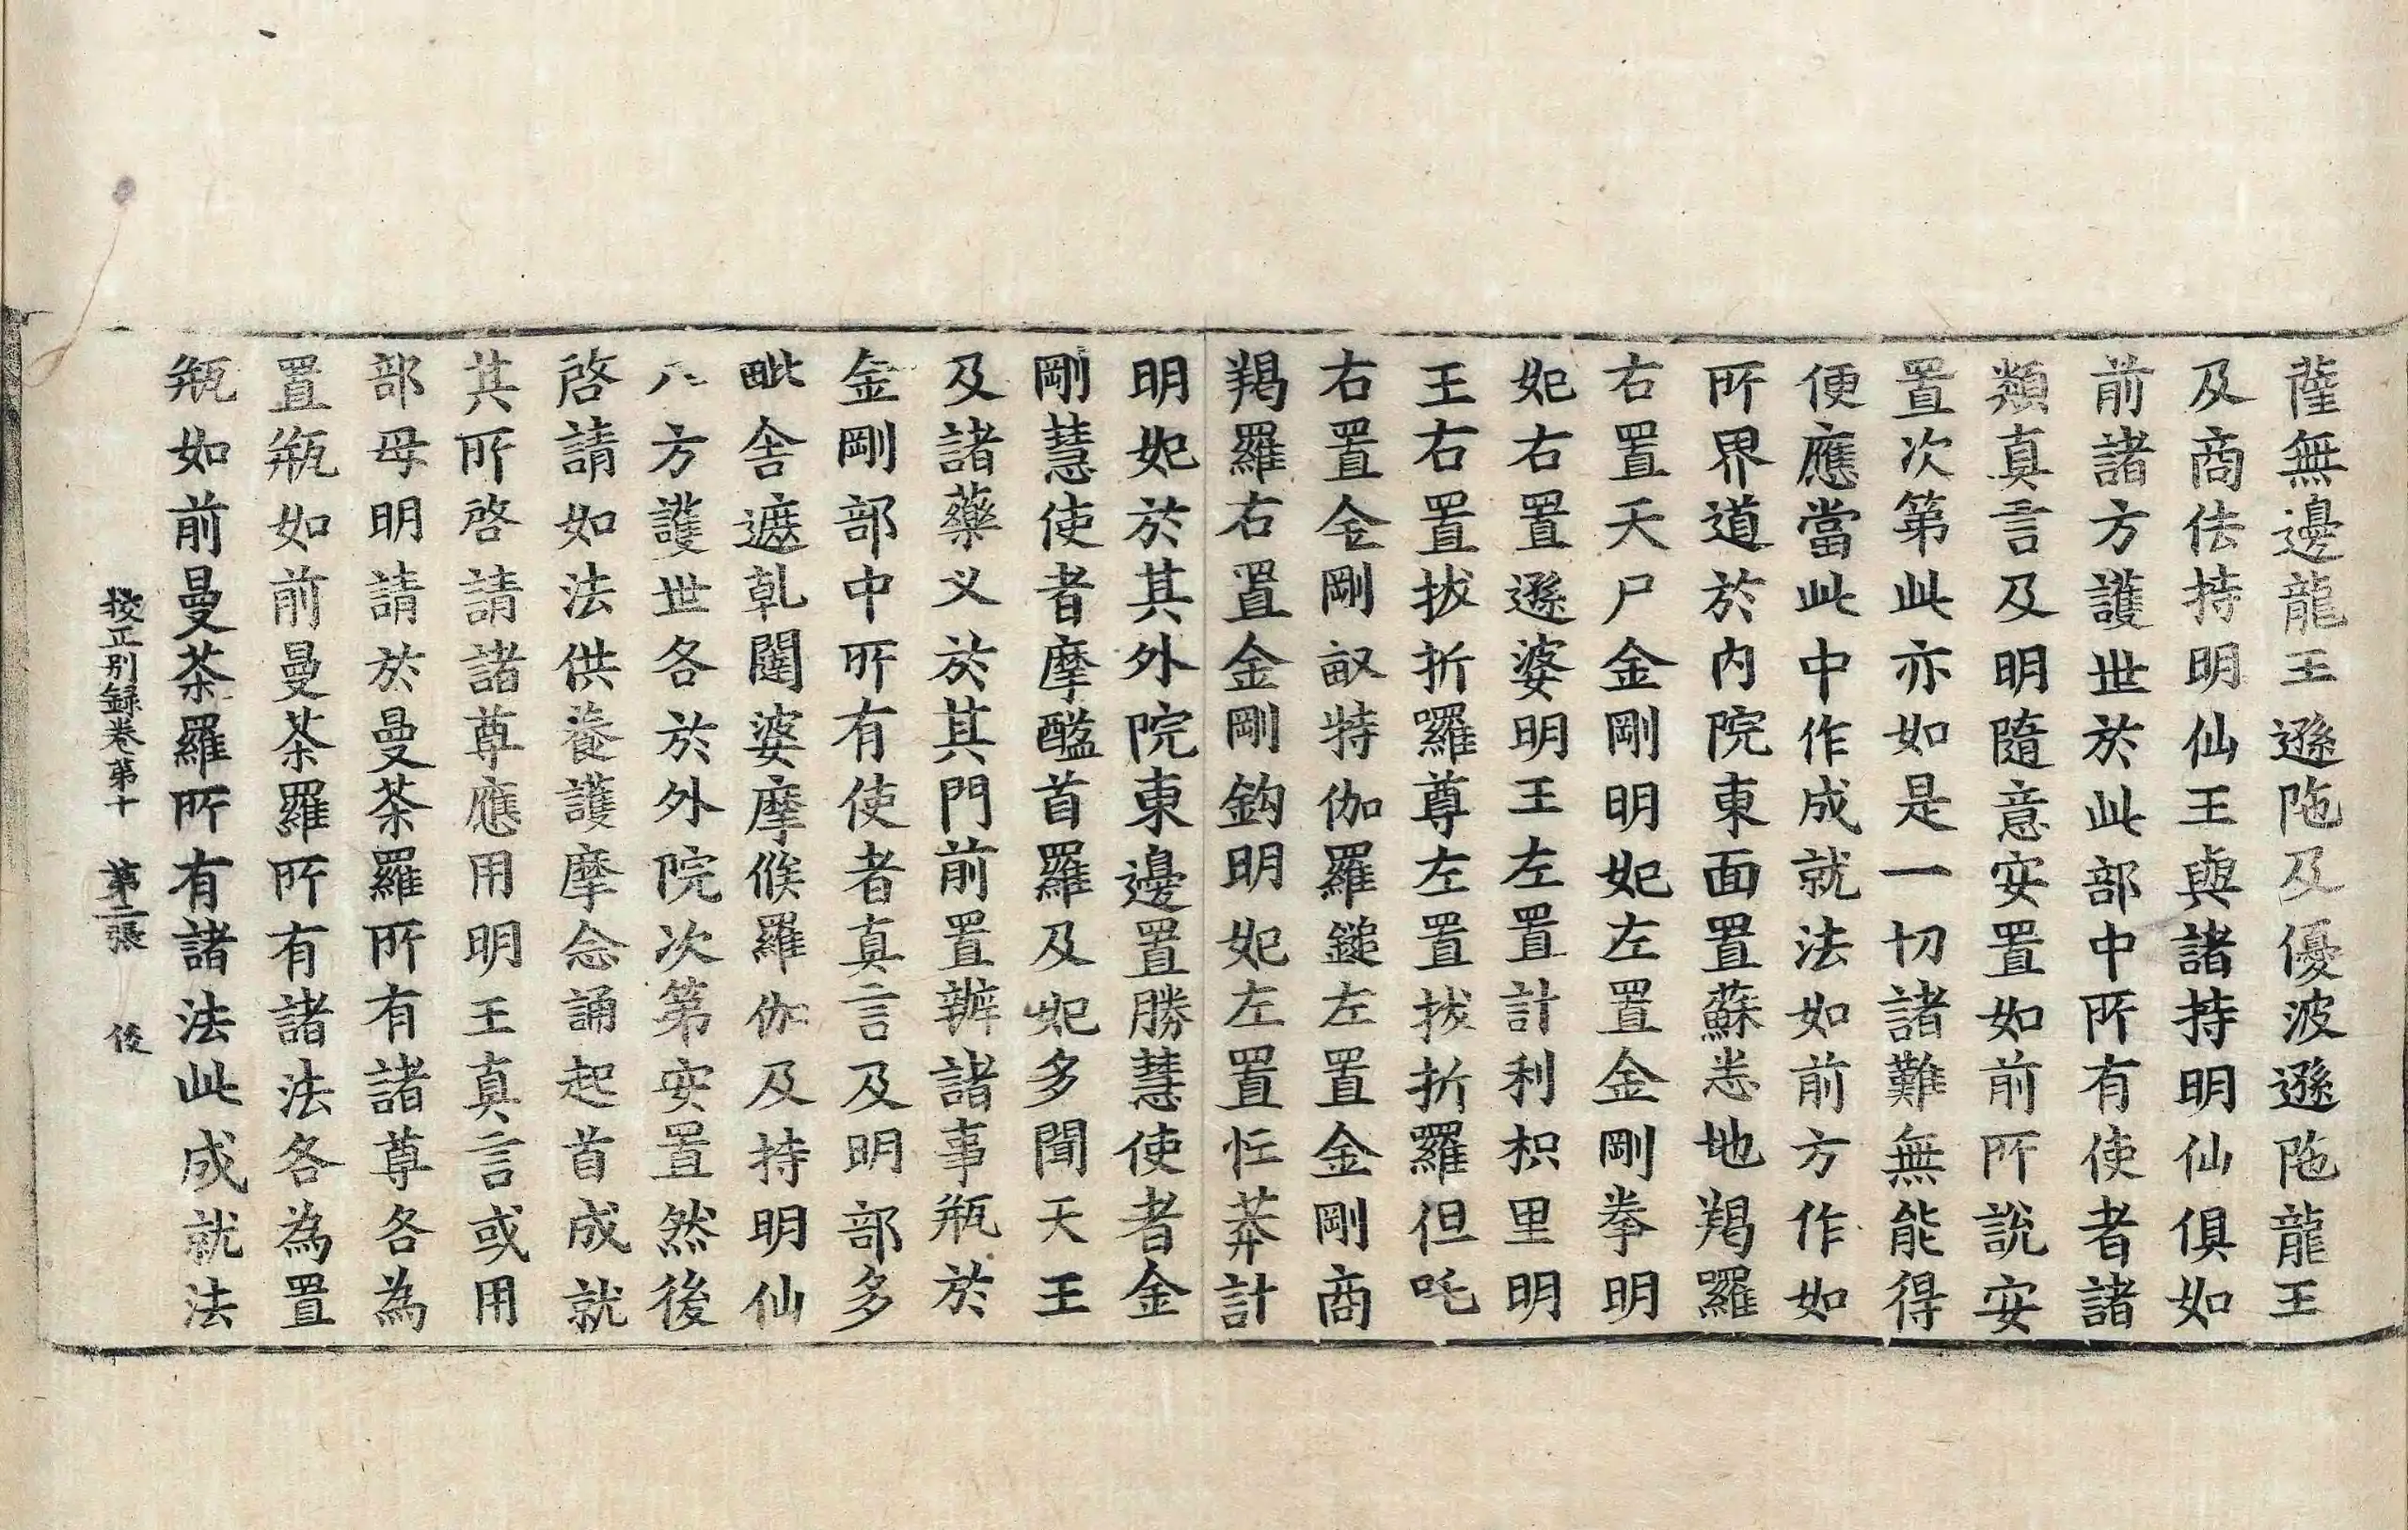 薩無邊龍王遜陁及優波遜陁龍王
及商佉持明仙王與諸持明仙俱如
前諸方護世於此部中所有使者諸
類真言及明隨意安置如前所說安
置次第此亦如是一切諸難無能得
便應當此中作成就法如前方作如
所界道於內院東面置蘇悉地羯羅
右置天尸金剛明妃左置金剛拳明
妃右置遜婆明王左置計利枳里明
王右置拔折羅尊左置拔折羅但吒
右置金剛𣫍特伽羅鎚左置金剛商
羯羅右置金剛鈎明妃左置忙莽計
明妃於其外院東邊置勝慧使者金
剛慧使者摩醯首羅及妃多聞天王
及諸藥义於其門前置辦諸事瓶於
金剛部中所有使者真言及明部多
毗舍遮乹闥婆摩㑋羅伽及持明仙
八方護世各於外院次第安置然後
啓請如法供養護摩念誦起首成就
其所啓請諸尊應用明王真言或用
部母明請於曼荼羅所有諸尊各為
置瓶如前曼荼羅所有諸法各為置
瓶如前曼荼羅所有諸法此成就法
挍正別録卷第十　第二張　俊